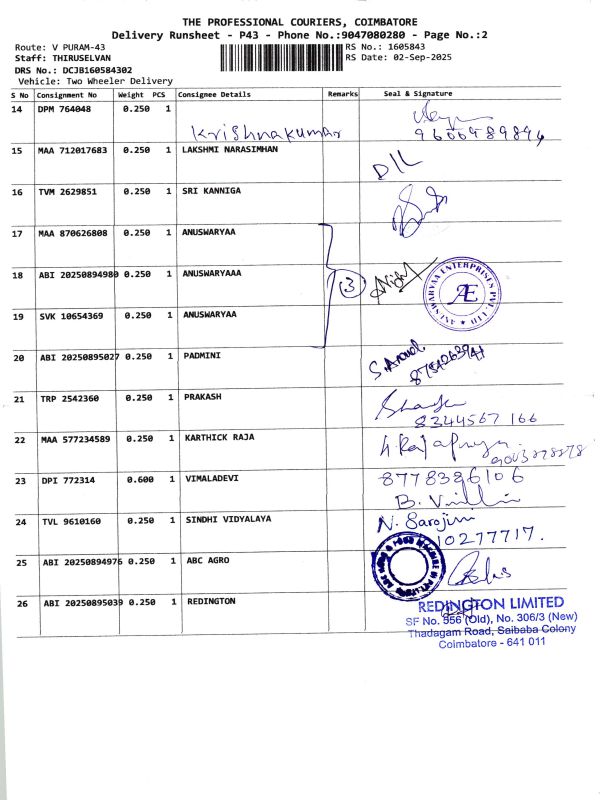 THE PROFESSIONAL COURIERS, COIMBATORE
Delivery Runsheet - P43 - Phone No.:9047080280 - Page No.:2
Route: V PURAM-43
RS No.: 1605843
Staff: THIRUSELVAN
RS Date: 02-Sep-2025
DRS No.: DCJB160584302
Vehicle: Two Wheeler Delivery
S No Consignment No Weight PCS Consignee Details Remarks Seal & Signature
14 DPM 764048 0.250 1
Krishnakumar
15 MAA 712017683 0.250 1 LAKSHMI NARASIMHAN
D/L
16 TVM 2629851 0.250 1 SRI KANNIGA
17 MAA 870626808 0.250 1 ANUSWARYAA
18 ABI 20250894980 0.250 1 ANUSWARYAAA
3
ANUSWARYAA ENTERPRISES PVT. LTD
AE
19 SVK 10654369 0.250 1 ANUSWARYAA
20 ABI 20250895027 0.250 1 PADMINI
21 TRP 2542360 0.250 1 PRAKASH
8344567 166
22 MAA 577234589 0.250 1 KARTHICK RAJA
23 DPI 772314 0.600 1 VIMALADEVI
8778386106
24 TVL 9610160 0.250 1 SINDHI VIDYALAYA
N. Sarojini
10277717.
25 ABI 20250894976 0.250 1 ABC AGRO
26 ABI 20250895039 0.250 1 REDINGTON
REDINGTON LIMITED
SF No. 556 (Old), No. 306/3 (New)
Thadagam Road, Saibaba Colony
Coimbatore - 641 011